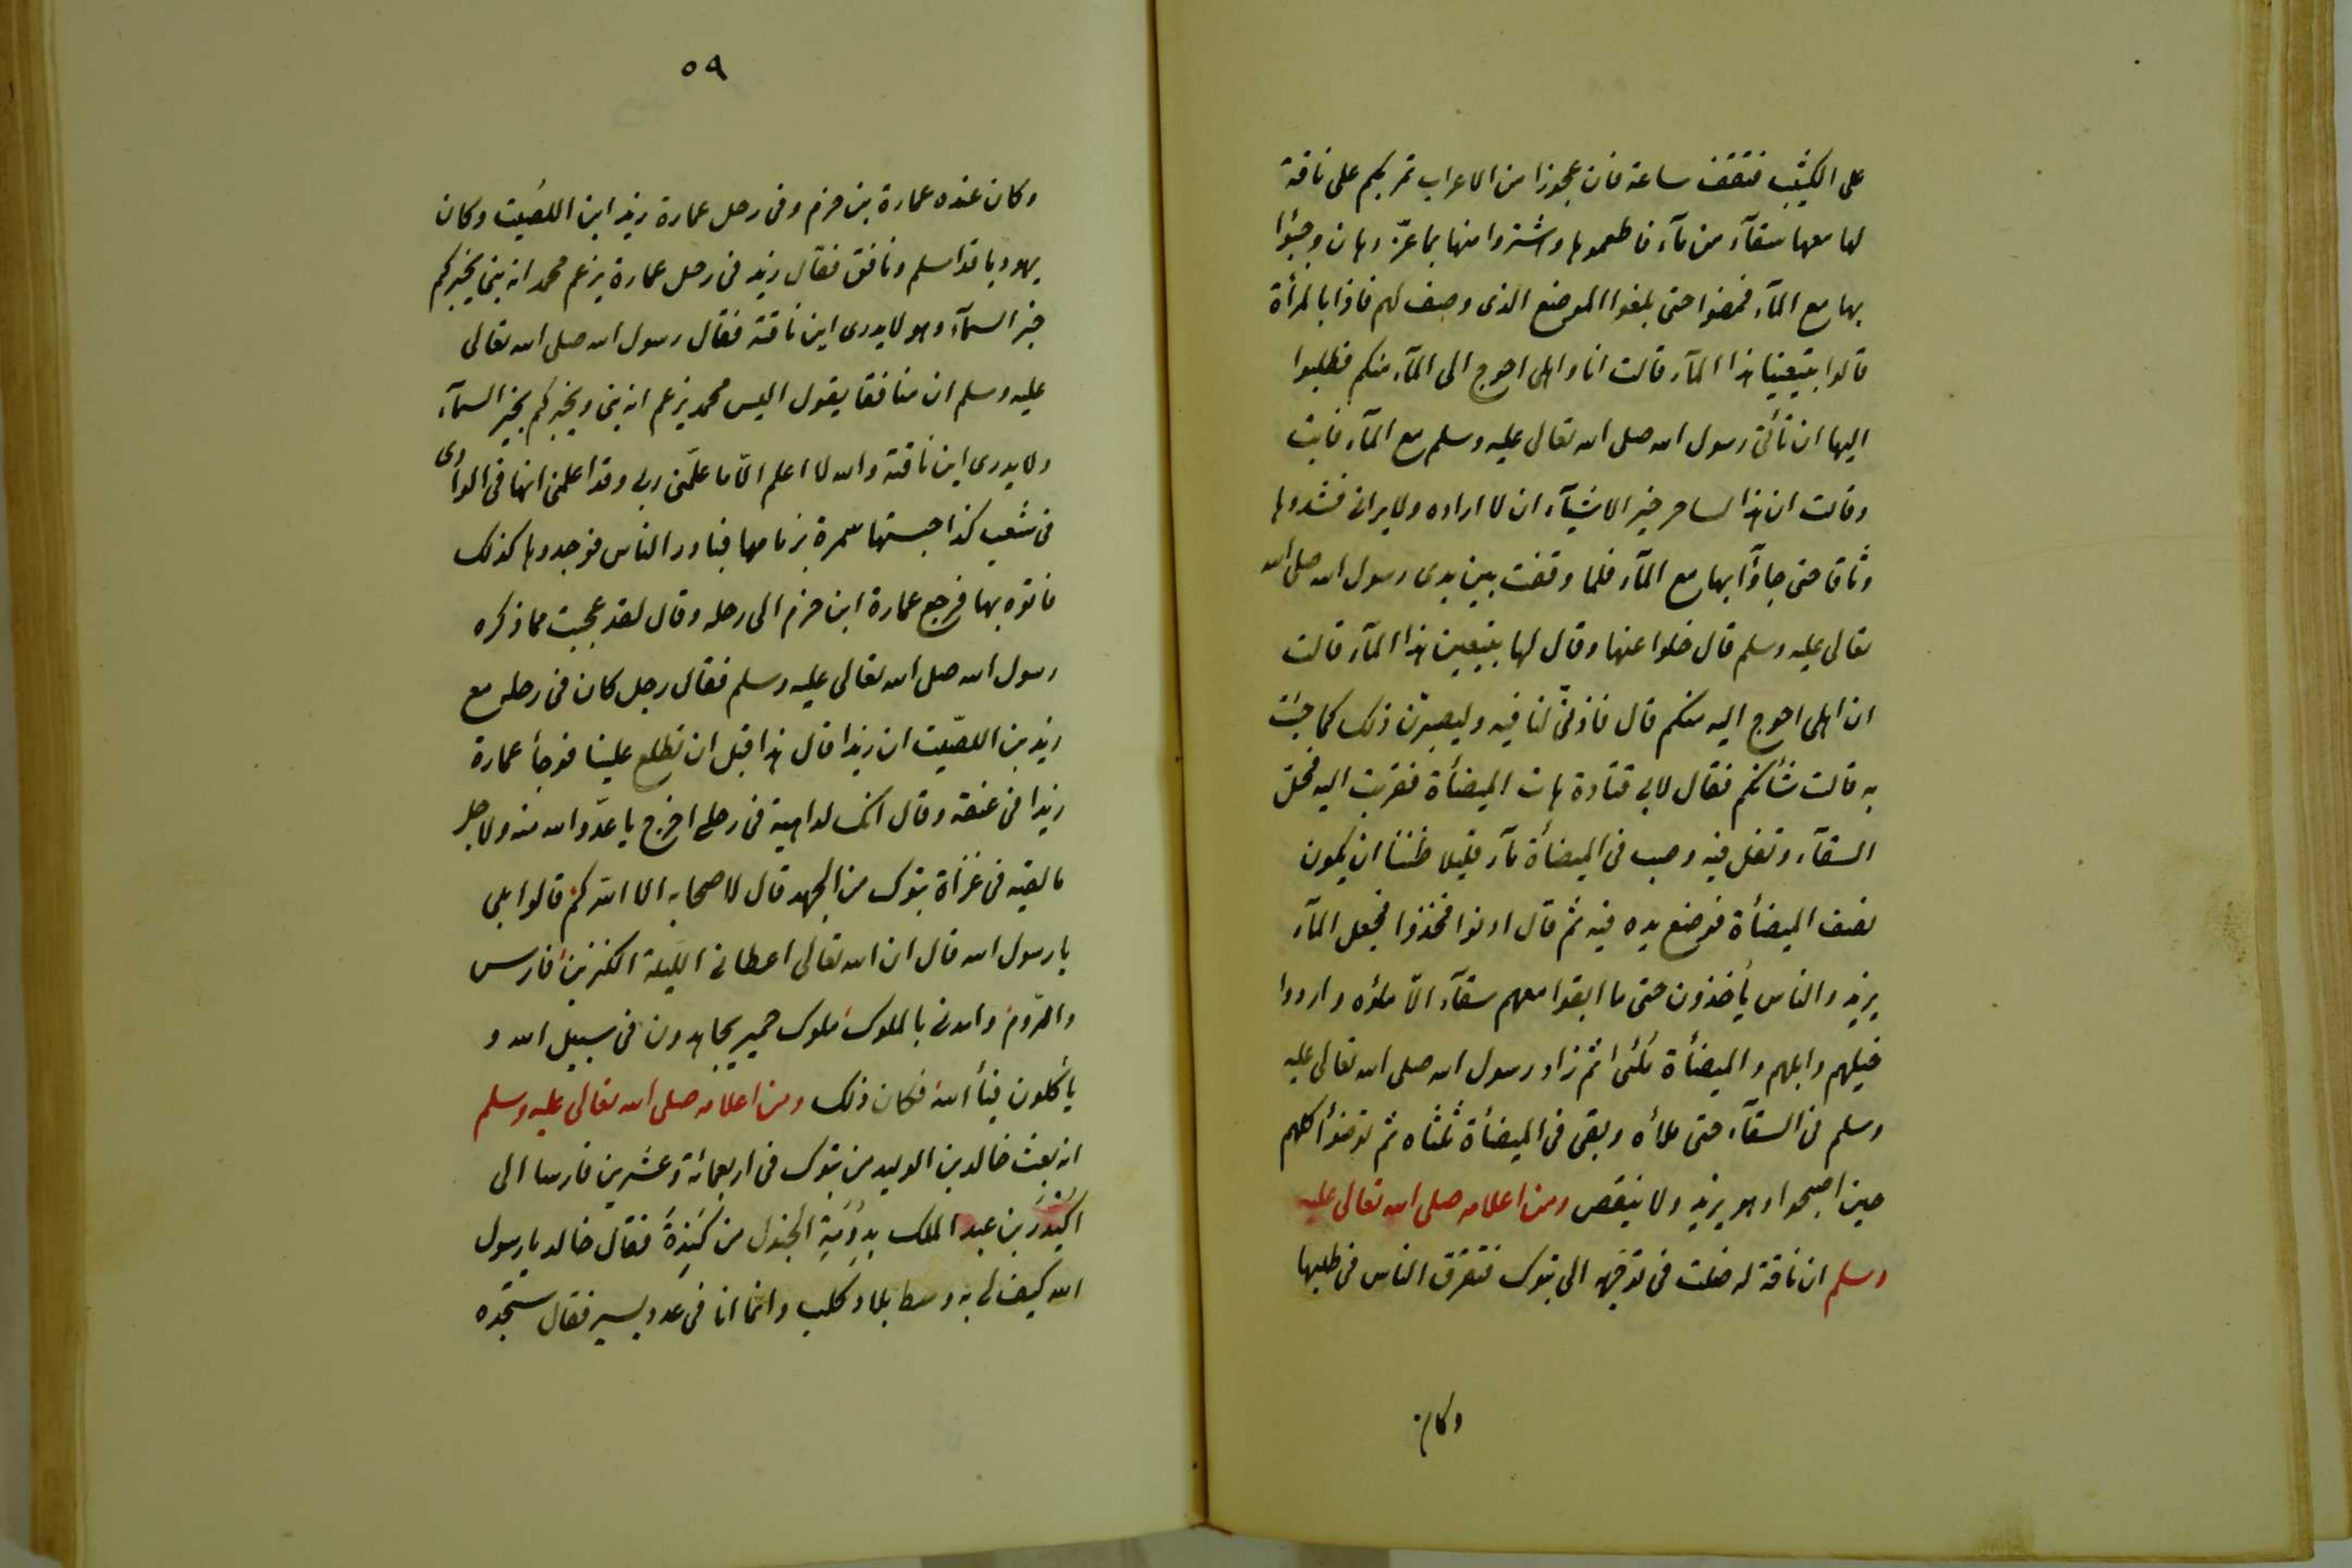 على الكثيب فتقف ساعة فان عجوزا من الاعراب تمر بكم على ناقة
لها معها سقآء من مآء فاطعموها واشتروا منها بما عزّ وهان وجيئوا
بها مع المآء فمضوا حتى بلغوا الموضع الذى وصف لهم فاذا بالمرأة
قالوا بيعينا هذا المآء قالت انا واهلى احوج الى المآء منكم فطلبوا
اليها ان تأتى رسول الله صلى الله تعالى عليه وسلم مع المآء فابت
وقالت ان هذا لساحر خير الاشيآء ان لا اراه ولا يرانى فشدوها
وثاقا حتى جاؤا بها مع المآء فلما وقفت بين يدى رسول الله صلى الله
تعالى عليه وسلم قال خلوا عنها وقال لها بيعين هذا المآء قالت
ان اهلى احوج اليه منكم قال فاذنى لنا فيه وليصيرن ذلك كما جئت
به قالت شأنكم فقال لابى قتادة هات الميضأة فقربت اليه فحل
السقآء وتفل فيه وصب فى الميضأة مآء قليلا ظننا ان يكون
نصف الميضأة فوضع يده فيه ثم قال ادنوا فخذوا فجعل المآء
يزيد والناس يأخذون حتى ما ابقوا معهم سقآء الّا ملؤه واردوا
خيلهم وابلهم والميضأة ثم زاد رسول الله صلى الله تعالى عليه
وسلم فى السقآء حتى ملأه وبقى فى الميضأة ثلثاه ثم توضؤا كلهم
حين اصبحوا وهو يزيد ولا ينقص ومن اعلامه صلى الله تعالى عليه
وسلم ان ناقة له ضلت فى توجّهه الى تبوك فتفرق الناس فى طلبها
وكان
٥٩
وكان عنده عمارة بن حزم وفى رحل عمارة زيد ابن اللصيت وكان
يهوديا قد اسلم ونافق فقال زيد فى رحل عمارة يزعم محمد انه نبى يخبركم
خبر السمآء وهو لا يدرى اين ناقته فقال رسول الله صلى الله تعالى
عليه وسلم ان منافقا يقول اليس محمد يزعم انه نبى ويخبركم بخبر السمآء
ولا يدرى اين ناقته والله لا اعلم الّا ما علّمنى ربى وقد اعلمنى انها فى الوادى
فى شعب كذا حبستها سمرة بزمامها فبادر الناس فوجدوها كذلك
فاتوه بها فرجع عمارة ابن حزم الى رحله وقال لقد عجبت مما ذكره
رسول الله صلى الله تعالى عليه وسلم فقال رجل كان فى رحله مع
زيد بن اللصّيت ان زيدا قال هذا قبل ان تطلع علينا فوجأ عمارة
زيدا فى عنقه وقال انك لداهية فى رحلى اخرج يا عدّو الله منه ولاجل
ما لقيه فى غزاة تبوك من الجهد قال لاصحابه الا ابشركم قالوا بلى
يا رسول الله قال ان الله تعالى اعطانى الليلة الكنزين فارس
والرّوم وامدنى بالملوك ملوك حمير يجاهدون فى سبيل الله و
يأكلون فيأ الله فكان ذلك ومن اعلامه صلى الله تعالى عليه وسلم
انه بعث خالد بن الوليد من تبوك فى اربعمائة وعشرين فارسا الى
اكيْدرَ بن عبد الملك بدُومَةِ الجندل من كِنْدة فقال خالد يا رسول
الله كيف لى به وسط بلاد كلب وانما انا فى عدد يسير فقال ستجده